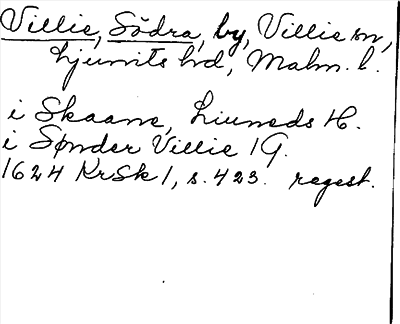 Villie, Södra, by, Villie sn,
Ljunits hd, Malm. l.
i Skaane, Liuneds H.
i Sønder Villie 1 G.
1624 KrSk 1, s. 423. regest.